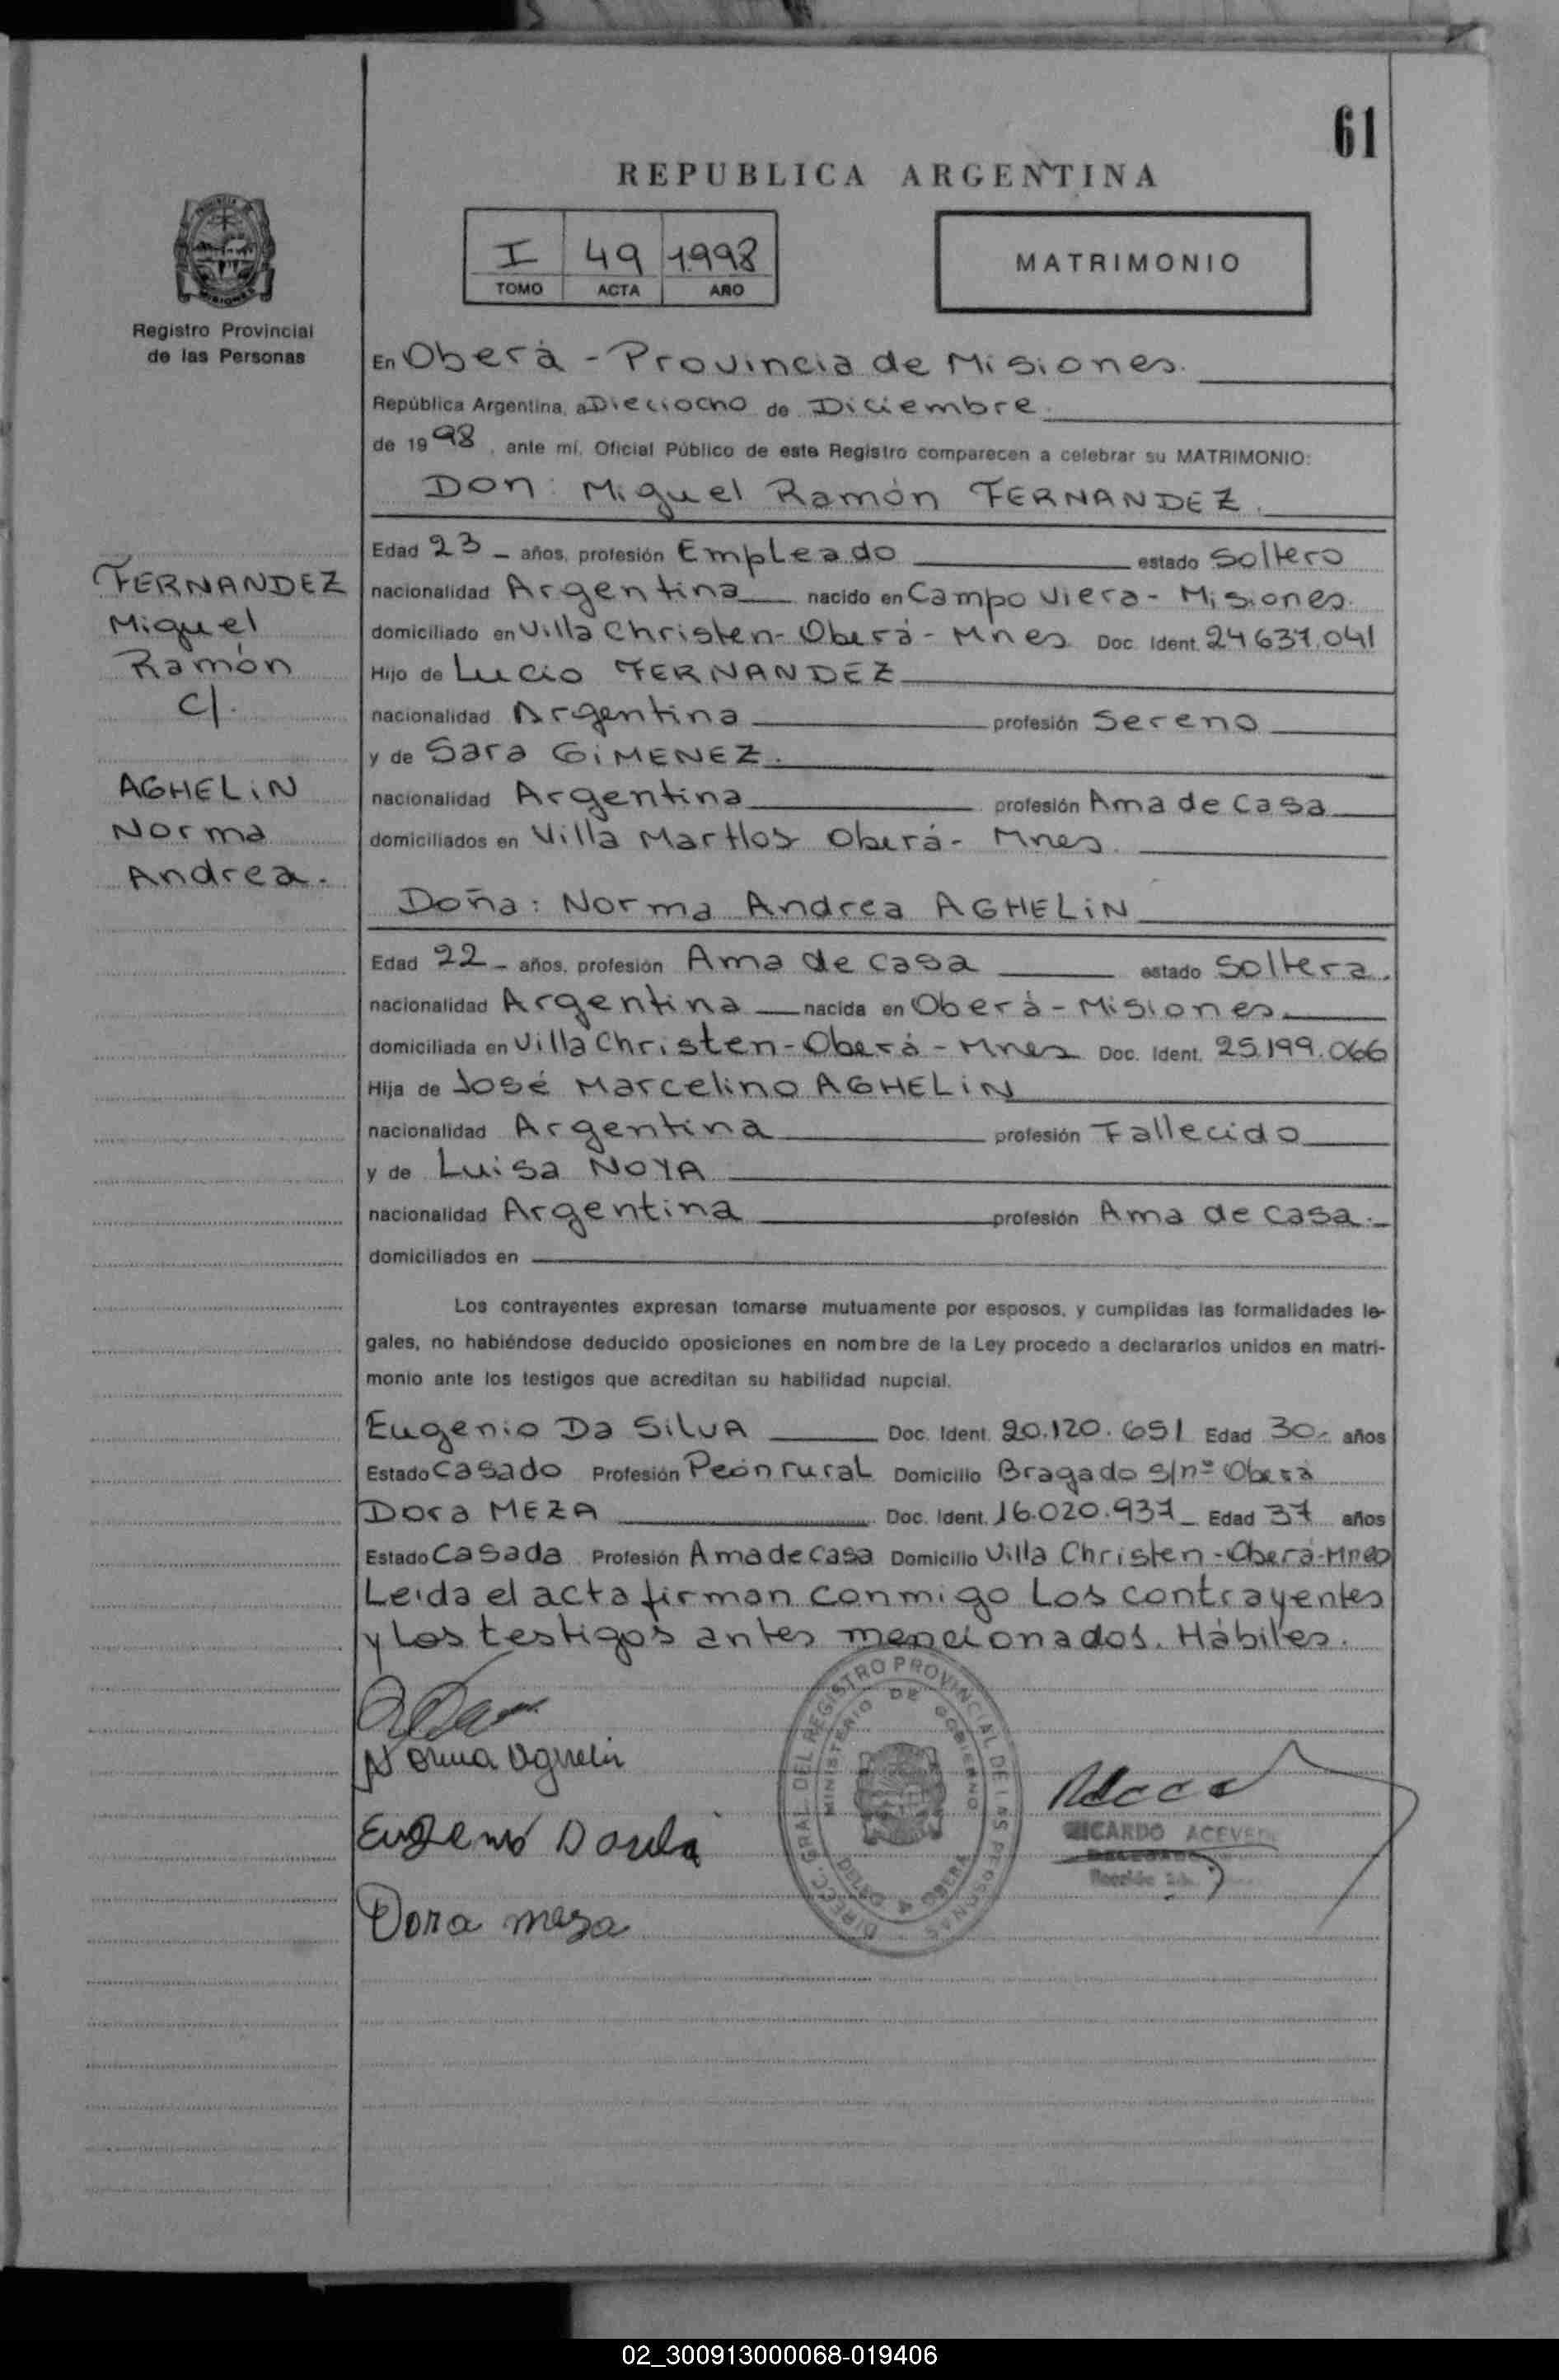 61
REPUBLICA ARGENTINA
I 49 1998
TOMO ACTA AÑO
MATRIMONIO
Registro Provincial
de las Personas
En Oberá - Provincia de Misiones.
República Argentina, a Dieciocho de Diciembre.
de 1998, ante mí, Oficial Público de este Registro comparecen a celebrar su MATRIMONIO:
Don: Miguel Ramón FERNANDEZ.
Edad 23 - años, profesión Empleado estado Soltero
nacionalidad Argentina nacido en Campo Viera - Misiones.
domiciliado en Villa Christen - Oberá - Mnes Doc. Ident. 24637.041
Hijo de Lucio FERNANDEZ
nacionalidad Argentina profesión Sereno
y de Sara GIMENEZ.
nacionalidad Argentina profesión Ama de Casa
domiciliados en Villa Oberá - Mnes.
FERNANDEZ
Miguel
Ramón
C/.
AGHELIN
Norma
Andrea.
Doña: Norma Andrea AGHELIN
Edad 22 - años, profesión Ama de casa estado Soltera.
nacionalidad Argentina nacida en Oberá - Misiones
domiciliada en Villa Christen - Oberá - Mnes Doc. Ident. 25.199.066
Hija de José Marcelino AGHELIN
nacionalidad Argentina profesión Fallecido
y de Luisa NOYA
nacionalidad Argentina profesión Ama de casa.
domiciliados en
Los contrayentes expresan tomarse mutuamente por esposos, y cumplidas las formalidades le-
gales, no habiéndose deducido oposiciones en nombre de la Ley procedo a declararlos unidos en matri-
monio ante los testigos que acreditan su habilidad nupcial.
Eugenio Da SILVA Doc. Ident. 20.120.651 Edad 30 - años
Estado Casado Profesión Peón rural Domicilio Bragado s/nº Oberá
Dora MEZA Doc. Ident. 16.020.937 - Edad 37 años
Estado Casada Profesión Ama de casa Domicilio Villa Christen - Oberá - Mnes
Leida el acta firman conmigo los contrayentes
y los testigos antes mencionados. Hábiles.
Norma Aghelin
Eugenio Dasilva
Dora meza
DIREC. GRAL. DEL REGISTRO PROVINCIAL DE LAS PERSONAS
MINISTERIO DE GOBIERNO
DELEG. OBERA
RICARDO ACEVEDO
02_300913000068-019406